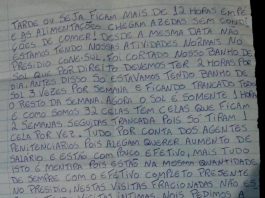 TARDE OU SEJA FICAM MAIS DE 12 HORAS EM PÉ
E AS ALIMENTAÇÕES CHEGAM AZEDAS SEM CONDI
ÇÕES DE COMER! DESDE A MESMA DATA NÃO
ESTAMOS TENDO NOSSAS ATIVIDADES NORMAIS NO
PRESIDIO CONE-SUL. FOI CORTADO NOSSO BANHO DE
SOL QUE POR DIREITO DEVEMOS TER 2 HORAS POR
DIA. ANTES DISSO SÓ ESTAVAMOS TENDO BANHO DE
SOL 3 VEZES POR SEMANA E FICANDO TRANCADO TODO
O RESTO DA SEMANA. AGORA O SOL É SOMENTE 1 PARA
E COMO SOMOS 32 CELAS TEM CELAS QUE FICAM
2 SEMANAS SEGUIDAS TRANCADA POIS SÓ TIRAM 1
CELA POR VEZ. TUDO POR CONTA DOS AGENTES
PENITENCIARIOS POIS ALEGAM QUERER AUMENTO DE
SALARIO E ESTÃO COM POUCO EFETIVO, MAIS TUDO
ISTO É MENTIRA POIS ESTÃO NA MESMA QUANTIDADE
DE SEMPRE COM O EFETIVO COMPLETO PRESENTE
NO PRESIDIO, NESTAS VISITAS FRACIONADAS NÃO ES
VISITAS INTIMAS. NOIS PEDIMOS A